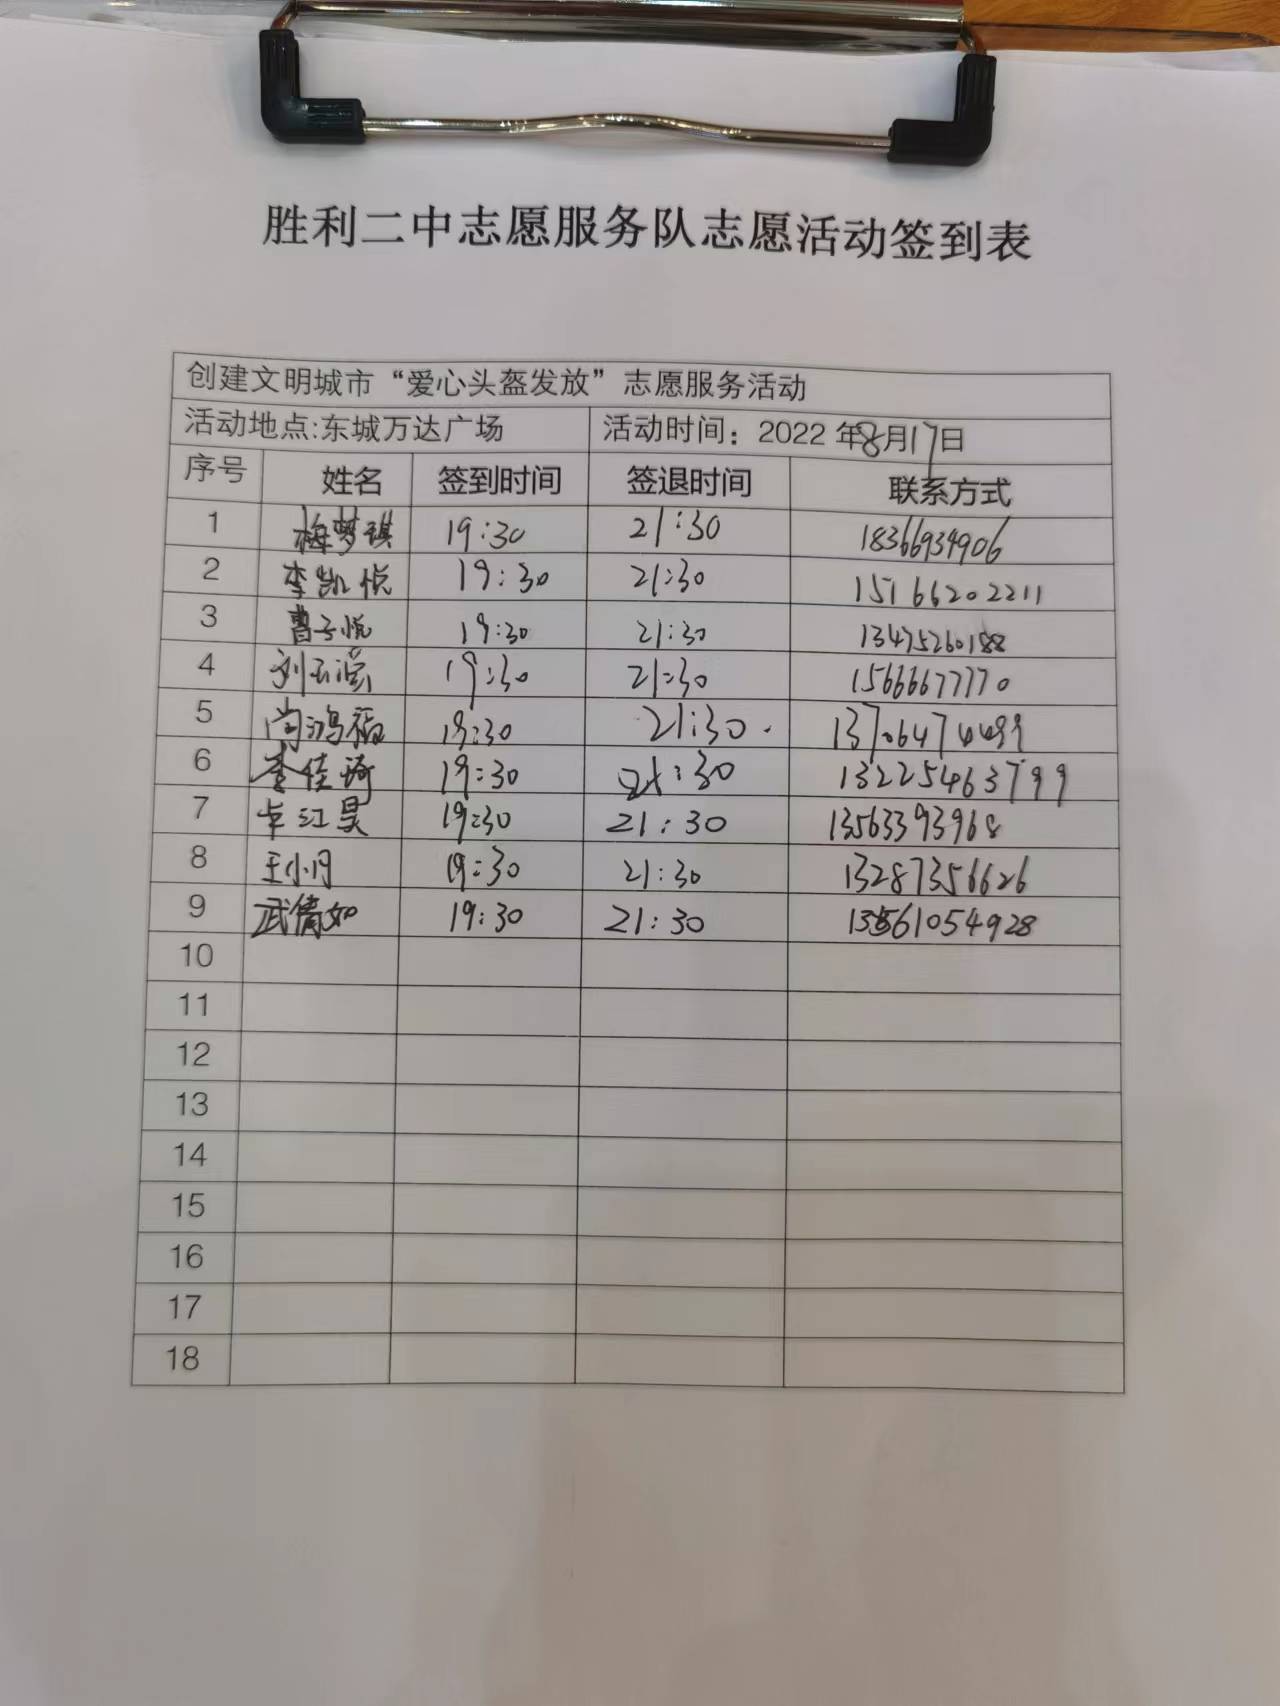 胜利二中志愿服务队志愿活动签到表
创建文明城市“爱心头盔发放”志愿服务活动
活动地点:东城万达广场 活动时间：2022 年8月17日
序号 姓名 签到时间 签退时间 联系方式
1 梅梦琪 19:30 21:30 18366934906
2 李凯悦 19:30 21:30 15166202211
3 曹子悦 19:30 21:30 13475260188
4 19:30 21:30 15666677770
5 尚鸿福 19:30 21:30 13706474499
6 李佳琦 19:30 21:30 13225463799
7 卓江昊 19:30 21:30 13563393968
8 王小丹 19:30 21:30 13287356626
9 武倩如 19:30 21:30
10
11
12
13
14
15
16
17
18